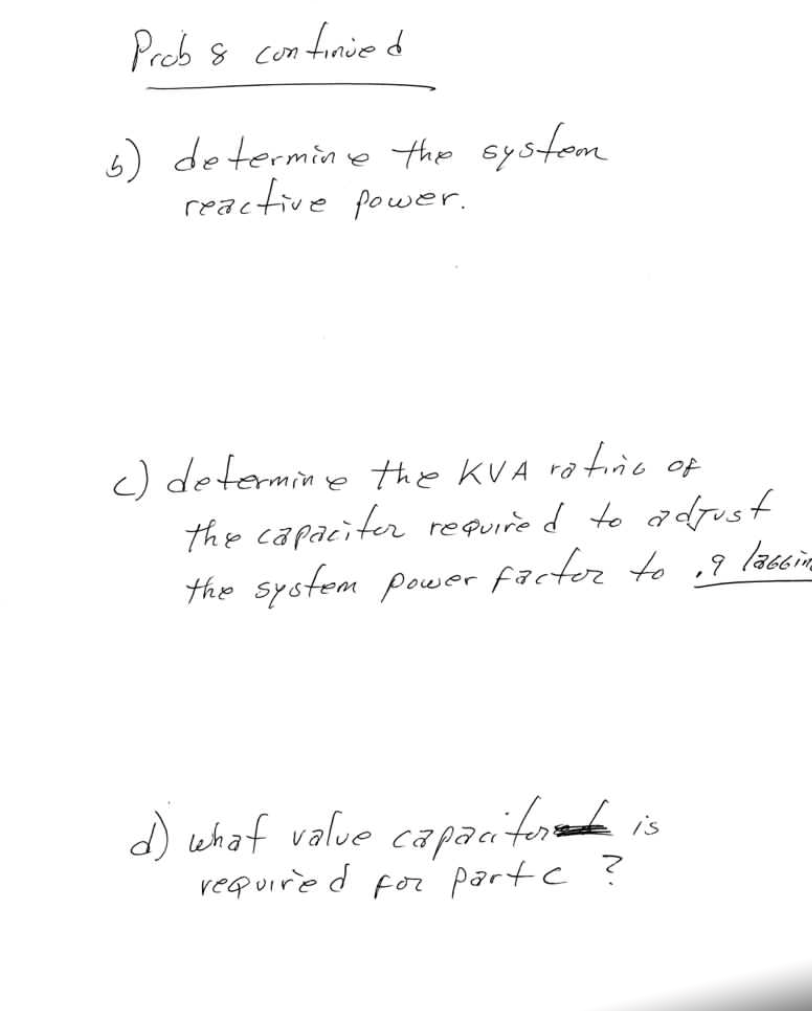 Prob 8 continued
b) determine the system
reactive power.
c) determine the KVA rating of
the capacitor required to adjust
the system power factor to .9 laggin
d) what value capacitor is
required for part c ?